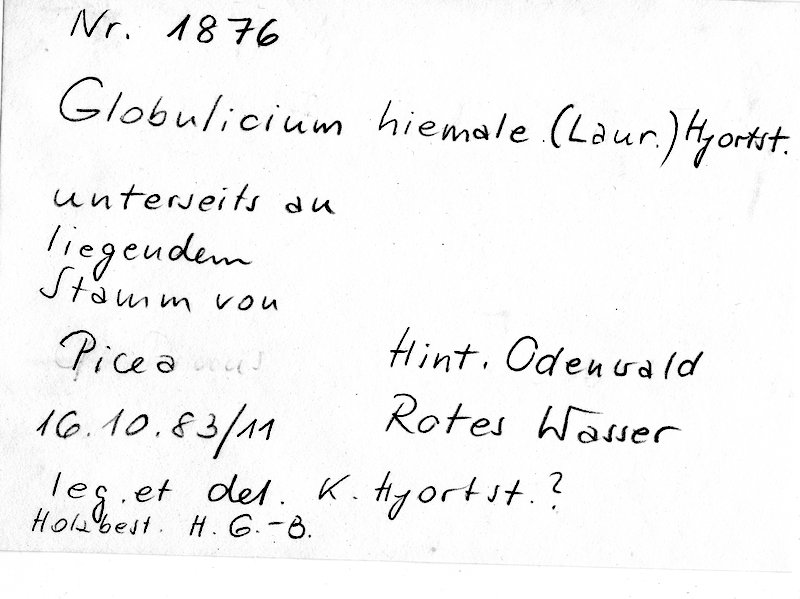 Nr. 1876
Globulicium hiemale (Laur.) Hjortst.
unterseits an
liegendem
Stamm von
Picea
Hint. Odenwald
16.10.83/11
Rotes Wasser
leg. et det. K. Hjortst.?
Holzbest. H. G.-B.